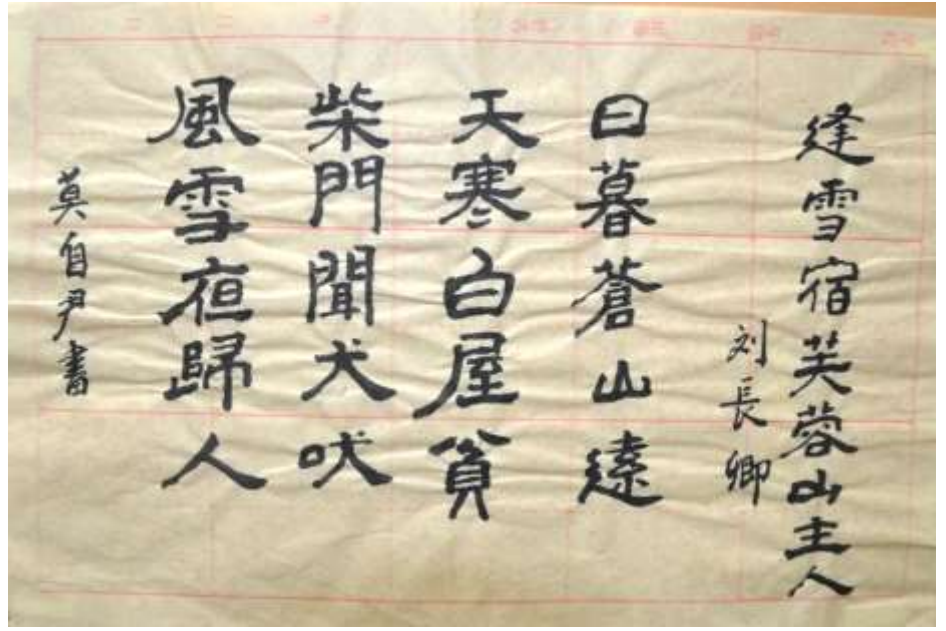 逢雪宿芙蓉山主人
刘長卿
日暮蒼山遠
天寒白屋貧
柴門聞犬吠
風雪夜歸人
莫自尹書